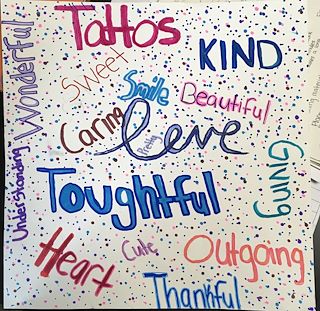 Tattos
Wonderful
KIND
Sweet
Smile
Beautiful
Caring
love
Pretty
Giving
Understanding
Toughtful
Heart
Cute
Outgoing
Thankful